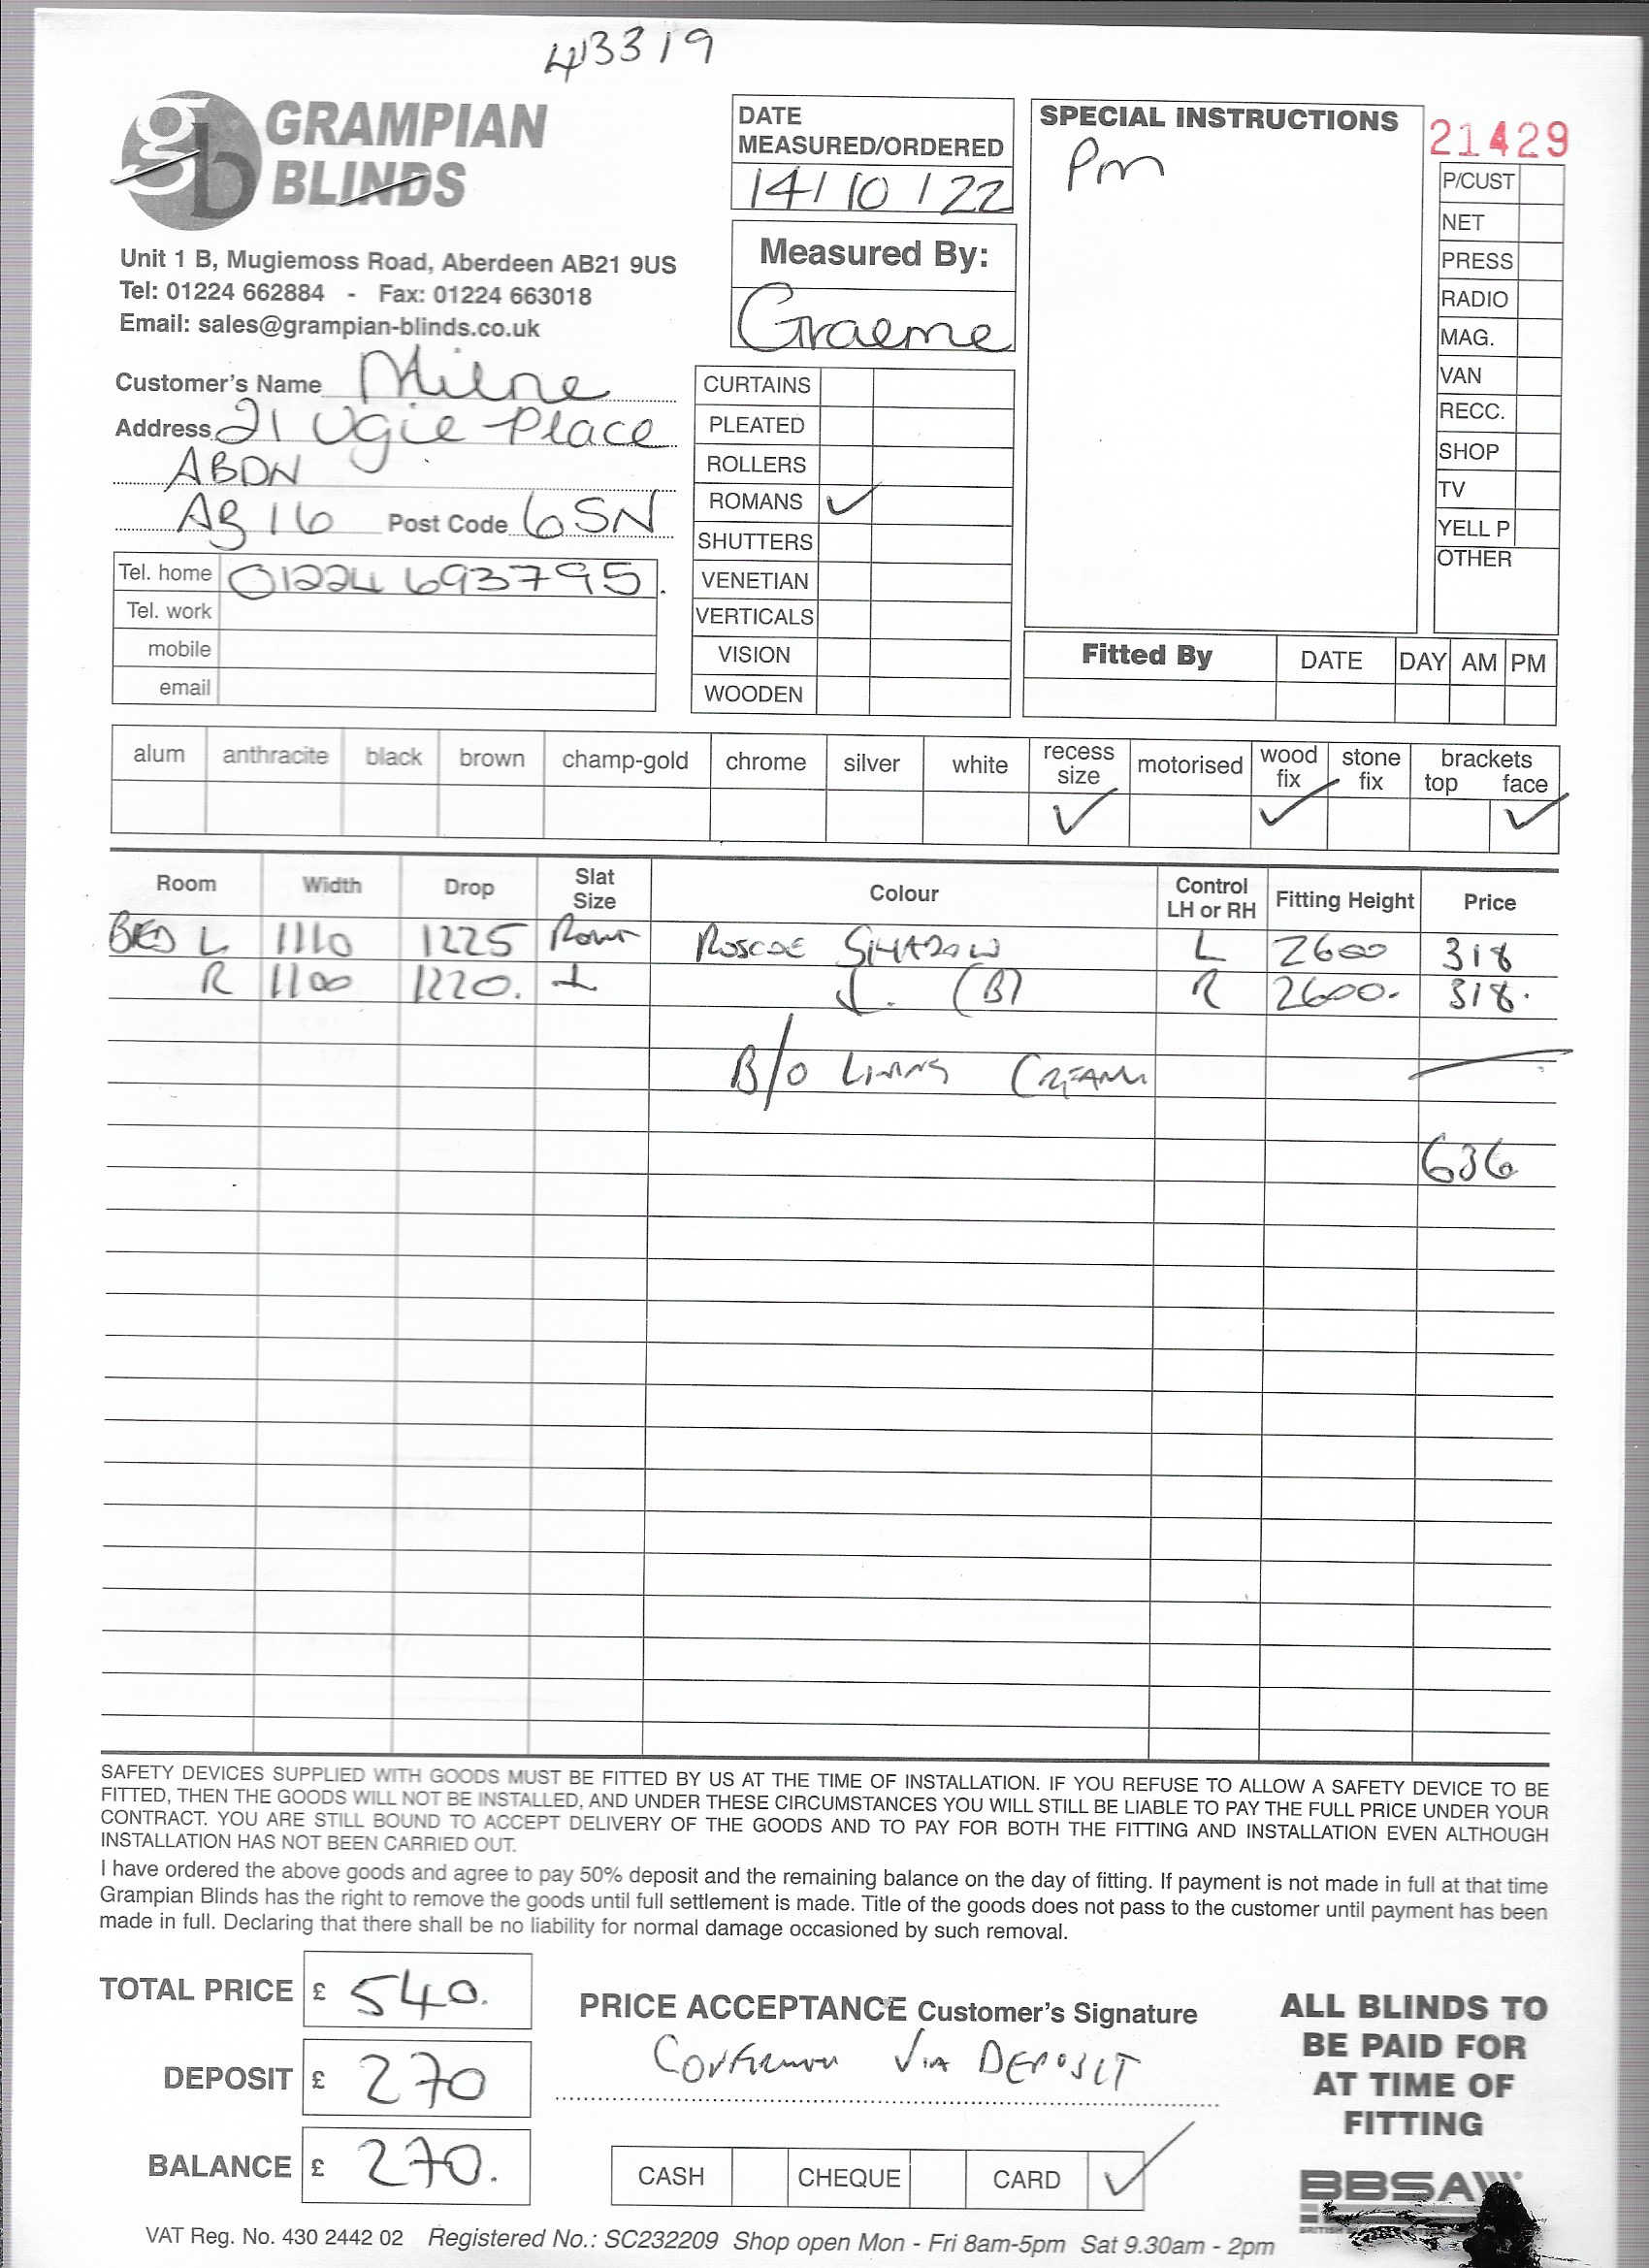 43319
GRAMPIAN
BLINDS
gb
Unit 1 B, Mugiemoss Road, Aberdeen AB21 9US
Tel: 01224 662884 - Fax: 01224 663018
Email: sales@grampian-blinds.co.uk
DATE
MEASURED/ORDERED
14/10/22
Measured By:
Graeme
SPECIAL INSTRUCTIONS
Pm
21429
P/CUST
NET
PRESS
RADIO
MAG.
VAN
RECC.
SHOP
TV
YELL P
OTHER
Customer's Name Milne
Address 21 Ugie Place
ABDN
AB16 Post Code 6SN
Tel. home 01224 693795.
Tel. work
mobile
email
CURTAINS
PLEATED
ROLLERS
ROMANS ✓
SHUTTERS
VENETIAN
VERTICALS
VISION
WOODEN
Fitted By DATE DAY AM PM
alum anthracite black brown champ-gold chrome silver white recess size motorised wood fix stone fix brackets top face
✓ ✓ ✓
Room Width Drop Slat Size Colour Control LH or RH Fitting Height Price
BED L 1110 1225 ROSCOE SHADOW L 2600 318
R 1100 1220. (B) R 2600. 318.
B/O LINING CREAM
636
SAFETY DEVICES SUPPLIED WITH GOODS MUST BE FITTED BY US AT THE TIME OF INSTALLATION. IF YOU REFUSE TO ALLOW A SAFETY DEVICE TO BE
FITTED, THEN THE GOODS WILL NOT BE INSTALLED, AND UNDER THESE CIRCUMSTANCES YOU WILL STILL BE LIABLE TO PAY THE FULL PRICE UNDER YOUR
CONTRACT. YOU ARE STILL BOUND TO ACCEPT DELIVERY OF THE GOODS AND TO PAY FOR BOTH THE FITTING AND INSTALLATION EVEN ALTHOUGH
INSTALLATION HAS NOT BEEN CARRIED OUT.
I have ordered the above goods and agree to pay 50% deposit and the remaining balance on the day of fitting. If payment is not made in full at that time
Grampian Blinds has the right to remove the goods until full settlement is made. Title of the goods does not pass to the customer until payment has been
made in full. Declaring that there shall be no liability for normal damage occasioned by such removal.
TOTAL PRICE £ 540.
DEPOSIT £ 270
BALANCE £ 270.
PRICE ACCEPTANCE Customer's Signature
VIA DEPOSIT
CASH CHEQUE CARD ✓
ALL BLINDS TO
BE PAID FOR
AT TIME OF
FITTING
BBSA
VAT Reg. No. 430 2442 02 Registered No.: SC232209 Shop open Mon - Fri 8am-5pm Sat 9.30am - 2pm